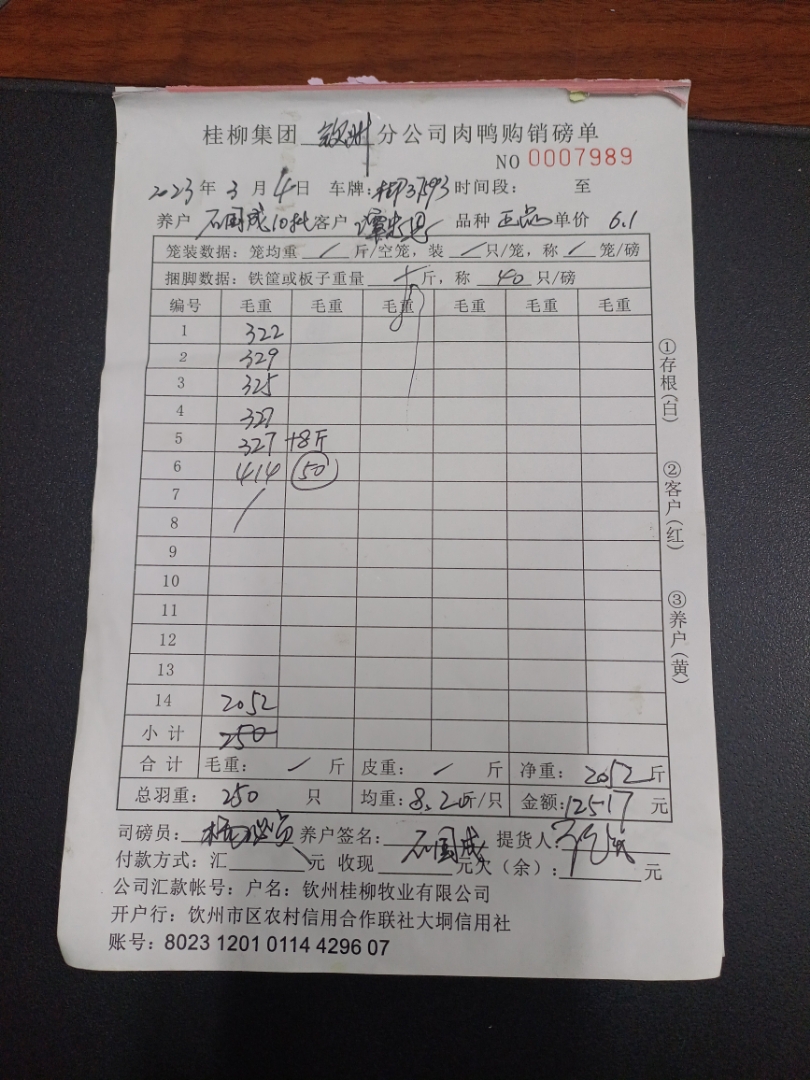 桂柳集团 钦州 分公司肉鸭购销磅单
NO 0007989
2023年3月4日 车牌: 时间段: 至
养户 石国成10批 客户 谭忠 品种 正品 单价 6.1
笼装数据: 笼均重 / 斤/空笼, 装 / 只/笼, 称 / 笼/磅
捆脚数据: 铁筐或板子重量 斤, 称 40 只/磅
编号 毛重 毛重 毛重 毛重 毛重 毛重
1 322
2 329
3 325
4 327
5 327 +8斤
6 414 50
7
8
9
10
11
12
13
14 2052
小计 250
合计 毛重: / 斤 皮重: / 斤 净重: 2052 斤
总羽重: 250 只 均重: 8.2 斤/只 金额: 12517 元
司磅员: 养户签名: 石国成 提货人:
付款方式: 汇 元 收现 元欠(余): 元
公司汇款帐号: 户名: 钦州桂柳牧业有限公司
开户行: 钦州市区农村信用合作联社大垌信用社
账号: 8023 1201 0114 4296 07
①存根(白)
②客户(红)
③养户(黄)